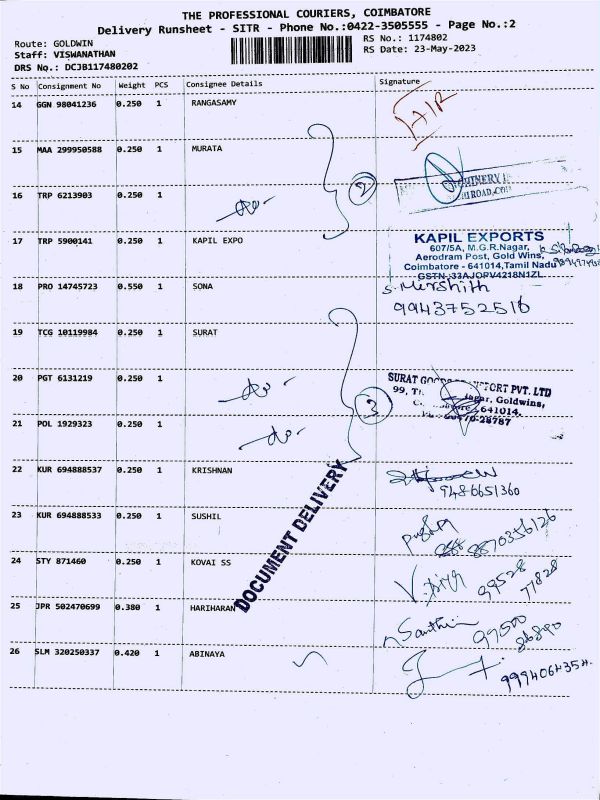 THE PROFESSIONAL COURIERS, COIMBATORE
Delivery Runsheet - SITR - Phone No.:0422-3505555 - Page No.:2
Route: GOLDWIN
RS No.: 1174802
Staff: VISWANATHAN
RS Date: 23-May-2023
DRS No.: DCJB117480202
S No Consignment No Weight PCS Consignee Details Signature
14 GGN 98041236 0.250 1 RANGASAMY
15 MAA 299950588 0.250 1 MURATA
16 TRP 6213903 0.250 1
2
17 TRP 5900141 0.250 1 KAPIL EXPO
KAPIL EXPORTS
607/5A, M.G.R.Nagar,
Aerodram Post, Gold Wins,
Coimbatore - 641014,Tamil Nadu
GSTN :33AJOPV4218N1ZL
18 PRO 14745723 0.550 1 SONA
S. Mirshith
9943752516
19 TCG 10119984 0.250 1 SURAT
20 PGT 6131219 0.250 1
SURAT GOODS TRANSPORT PVT. LTD
Nagar, Goldwins,
641014.
3
21 POL 1929323 0.250 1
22 KUR 694888537 0.250 1 KRISHNAN
9486651360
23 KUR 694888533 0.250 1 SUSHIL
8870356126
DOCUMENT DELIVERY
24 STY 871460 0.250 1 KOVAI SS
99528
77828
25 JPR 502470699 0.380 1 HARIHARAN
Santhi
97500
86890
26 SLM 320250337 0.420 1 ABINAYA
9994064354